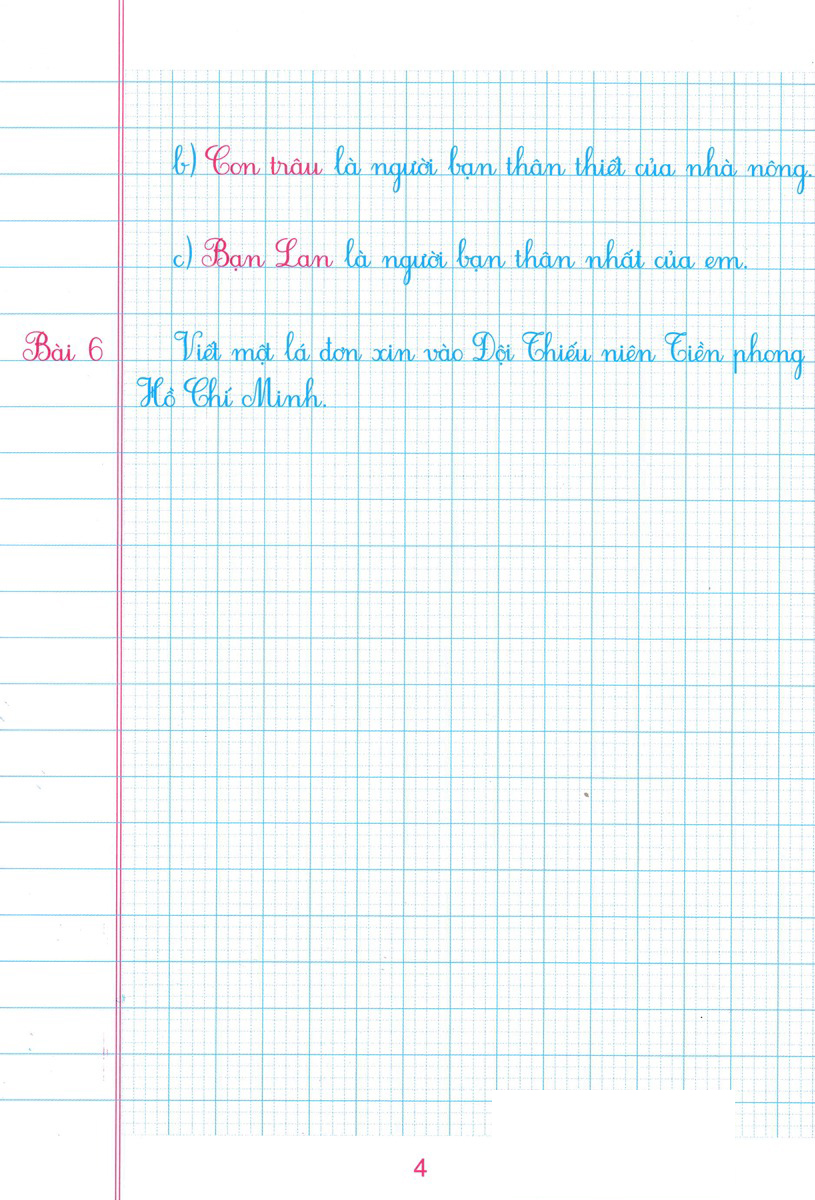 b) Con trâu là người bạn thân thiết của nhà nông.
c) Bạn Lan là người bạn thân nhất của em.
Bài 6 Viết một lá đơn xin vào Đội Thiếu niên Tiền phong
Hồ Chí Minh.
4